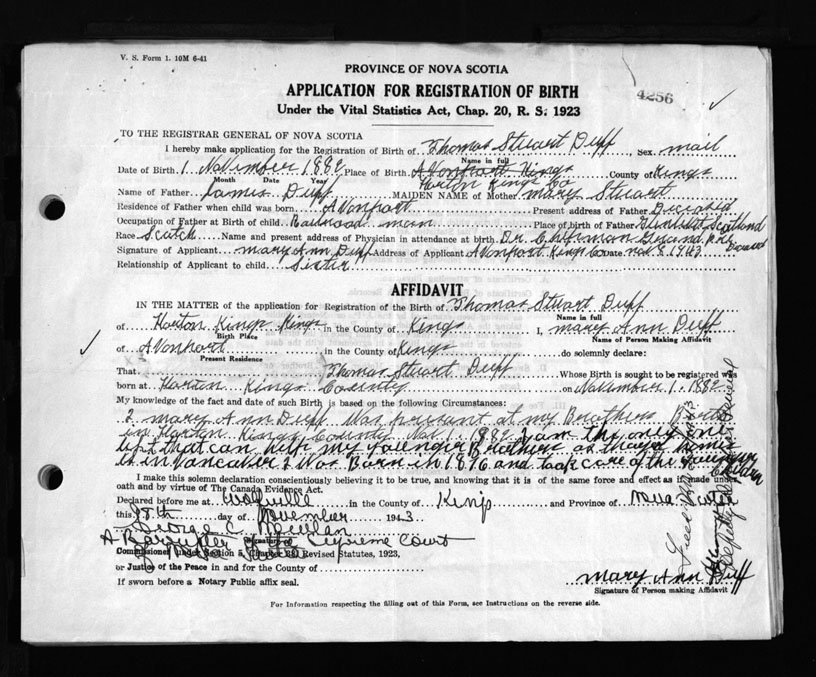 V. S. Form 1. 10M 6-41
PROVINCE OF NOVA SCOTIA
APPLICATION FOR REGISTRATION OF BIRTH
4256
Under the Vital Statistics Act, Chap. 20, R. S. 1923
TO THE REGISTRAR GENERAL OF NOVA SCOTIA
I hereby make application for the Registration of Birth of Thomas Stuart Duff Sex mail
Name in full
Date of Birth 1 November 188 Place of Birth Avonport Kings County of Kings
Month Date Year Horton Kings Co
Name of Father James Duff MAIDEN NAME of Mother Mary Stuart
Residence of Father when child was born Avonport Present address of Father
Occupation of Father at Birth of child Railroad man Place of birth of Father Scotland
Race Scotch Name and present address of Physician in attendance at birth Dr.
Signature of Applicant Mary Ann Duff Address of Applicant Avonport Kings Co Date Nov 8 1943
Relationship of Applicant to child Sister
AFFIDAVIT
IN THE MATTER of the application for Registration of the Birth of Thomas Stuart Duff
Name in full
of Horton Kings Kings in the County of Kings I, Mary Ann Duff
Birth Place Name of Person Making Affidavit
of Avonport in the County of Kings do solemnly declare:
Present Residence
That Thomas Stuart Duff Whose Birth is sought to be registered was
born at Horton Kings County on November 1. 188
My knowledge of the fact and date of such Birth is based on the following Circumstances:
I Mary Ann Duff Was present at my Brothers Birth
in Horton Kings County Nov 1. 188 I am the only one
left that can help my younger Brothers as there home
is in Vancover I Was Born in 18 6 and took care of the younger
Children
I make this solemn declaration conscientiously believing it to be true, and knowing that it is of the same force and effect as if made under
oath and by virtue of The Canada Evidence Act.
Declared before me at Wolfville in the County of Kings and Province of Nova Scotia
this 8th day of November 1943
George C.
Signature
A Barrister of the Supreme Court
Commissioner under Section 5, Chapter Revised Statutes, 1923,
or Justice of the Peace in and for the County of
If sworn before a Notary Public affix seal.
Mary Ann Duff
Signature of Person making Affidavit
For Information respecting the filling out of this Form, see Instructions on the reverse side.